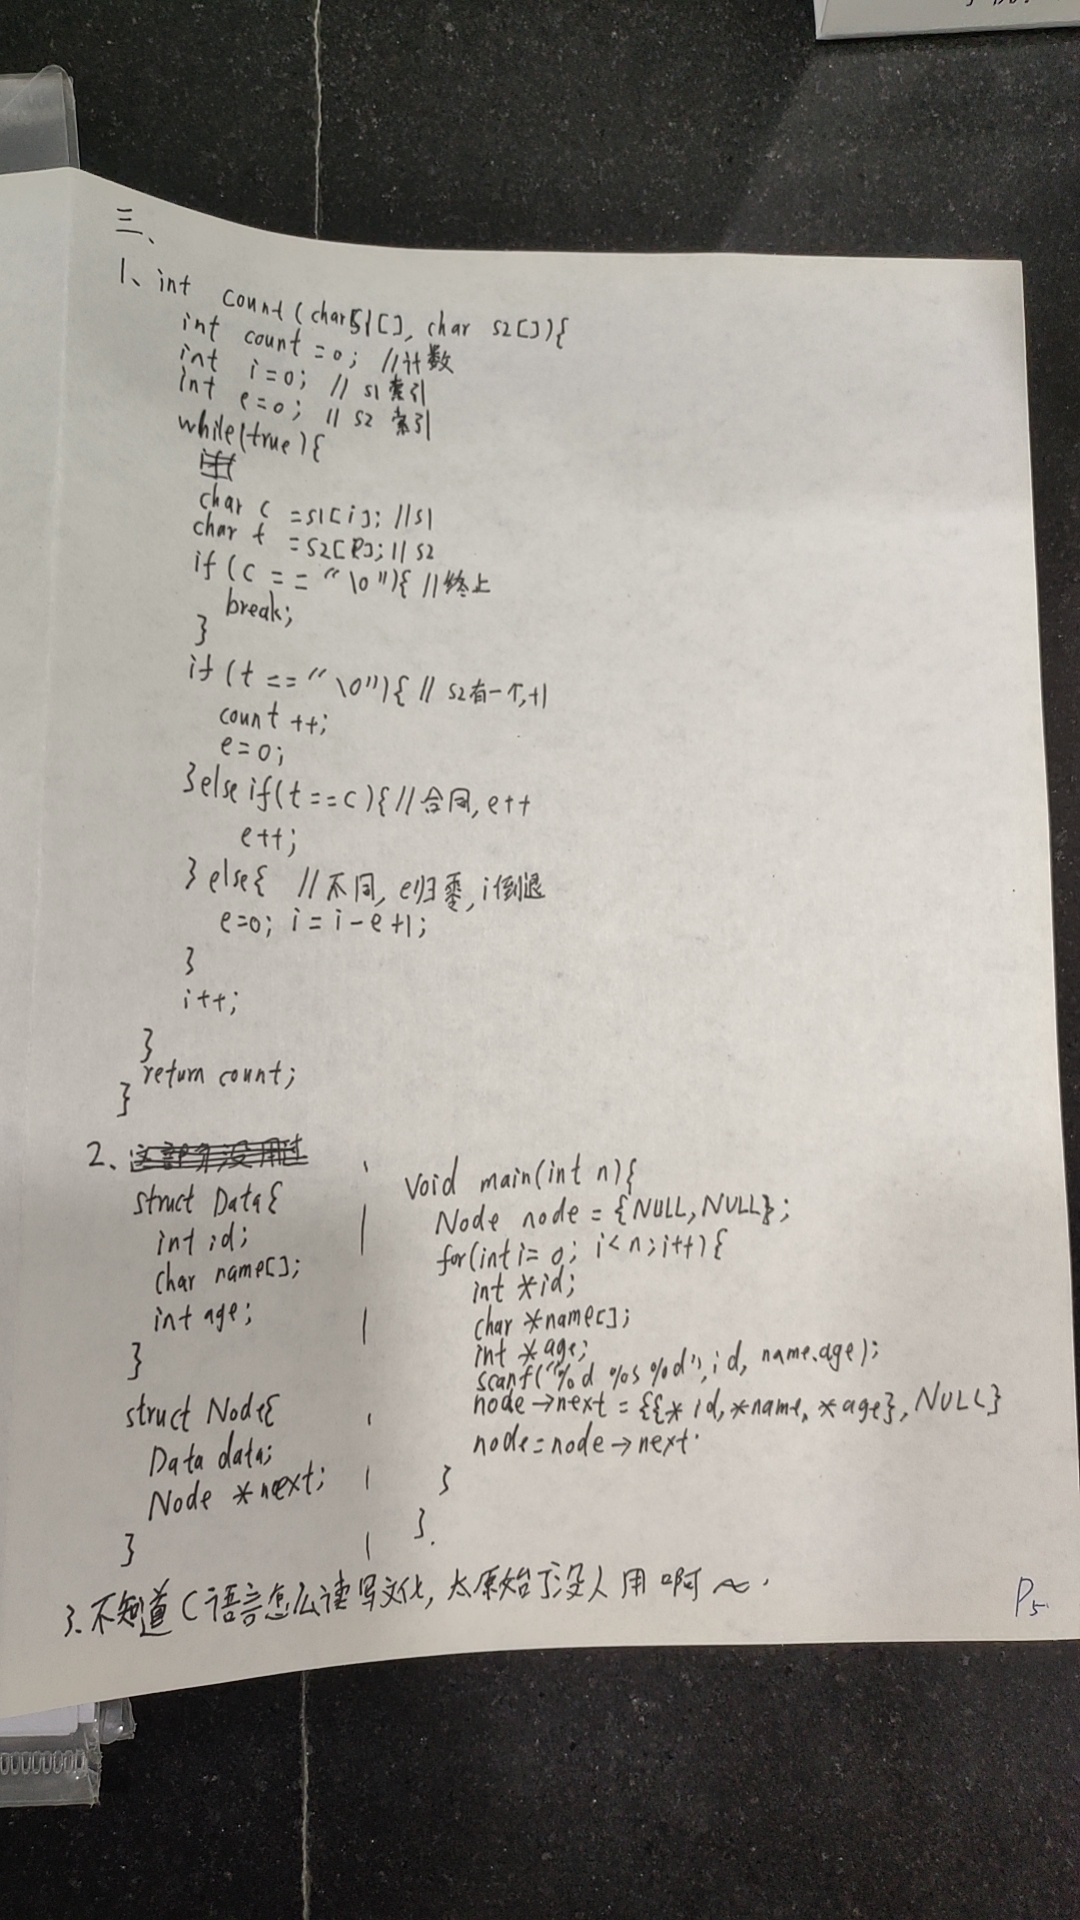 三、
1、int count(char s1[], char s2[]){
int count=0; //计数
int i=0; // s1 索引
int e=0; // s2 索引
while(true){
char c =s1[i]; //s1
char t =s2[e]; // s2
if(c == "\0"){ //终止
break;
}
if(t == "\0"){ // s2有一个,+1
count++;
e=0;
}else if(t==c){ //合同, e++
e++;
} else{ //不同, e归零, i倒退
e=0; i=i-e+1;
}
i++;
}
return count;
}
2、
struct Data{
int id;
char name[];
int age;
}
struct Node{
Data data;
Node *next;
}
Void main(int n){
Node node = {NULL, NULL};
for(int i= 0; i<n; i++){
int *id;
char *name[];
int *age;
scanf("%d %s %d", id, name.age);
node→next = {{*id, *name, *age}, NULL}
node=node→next.
}
}.
3.不知道C语言怎么读写文化,太原始了没人用啊~.
P5.